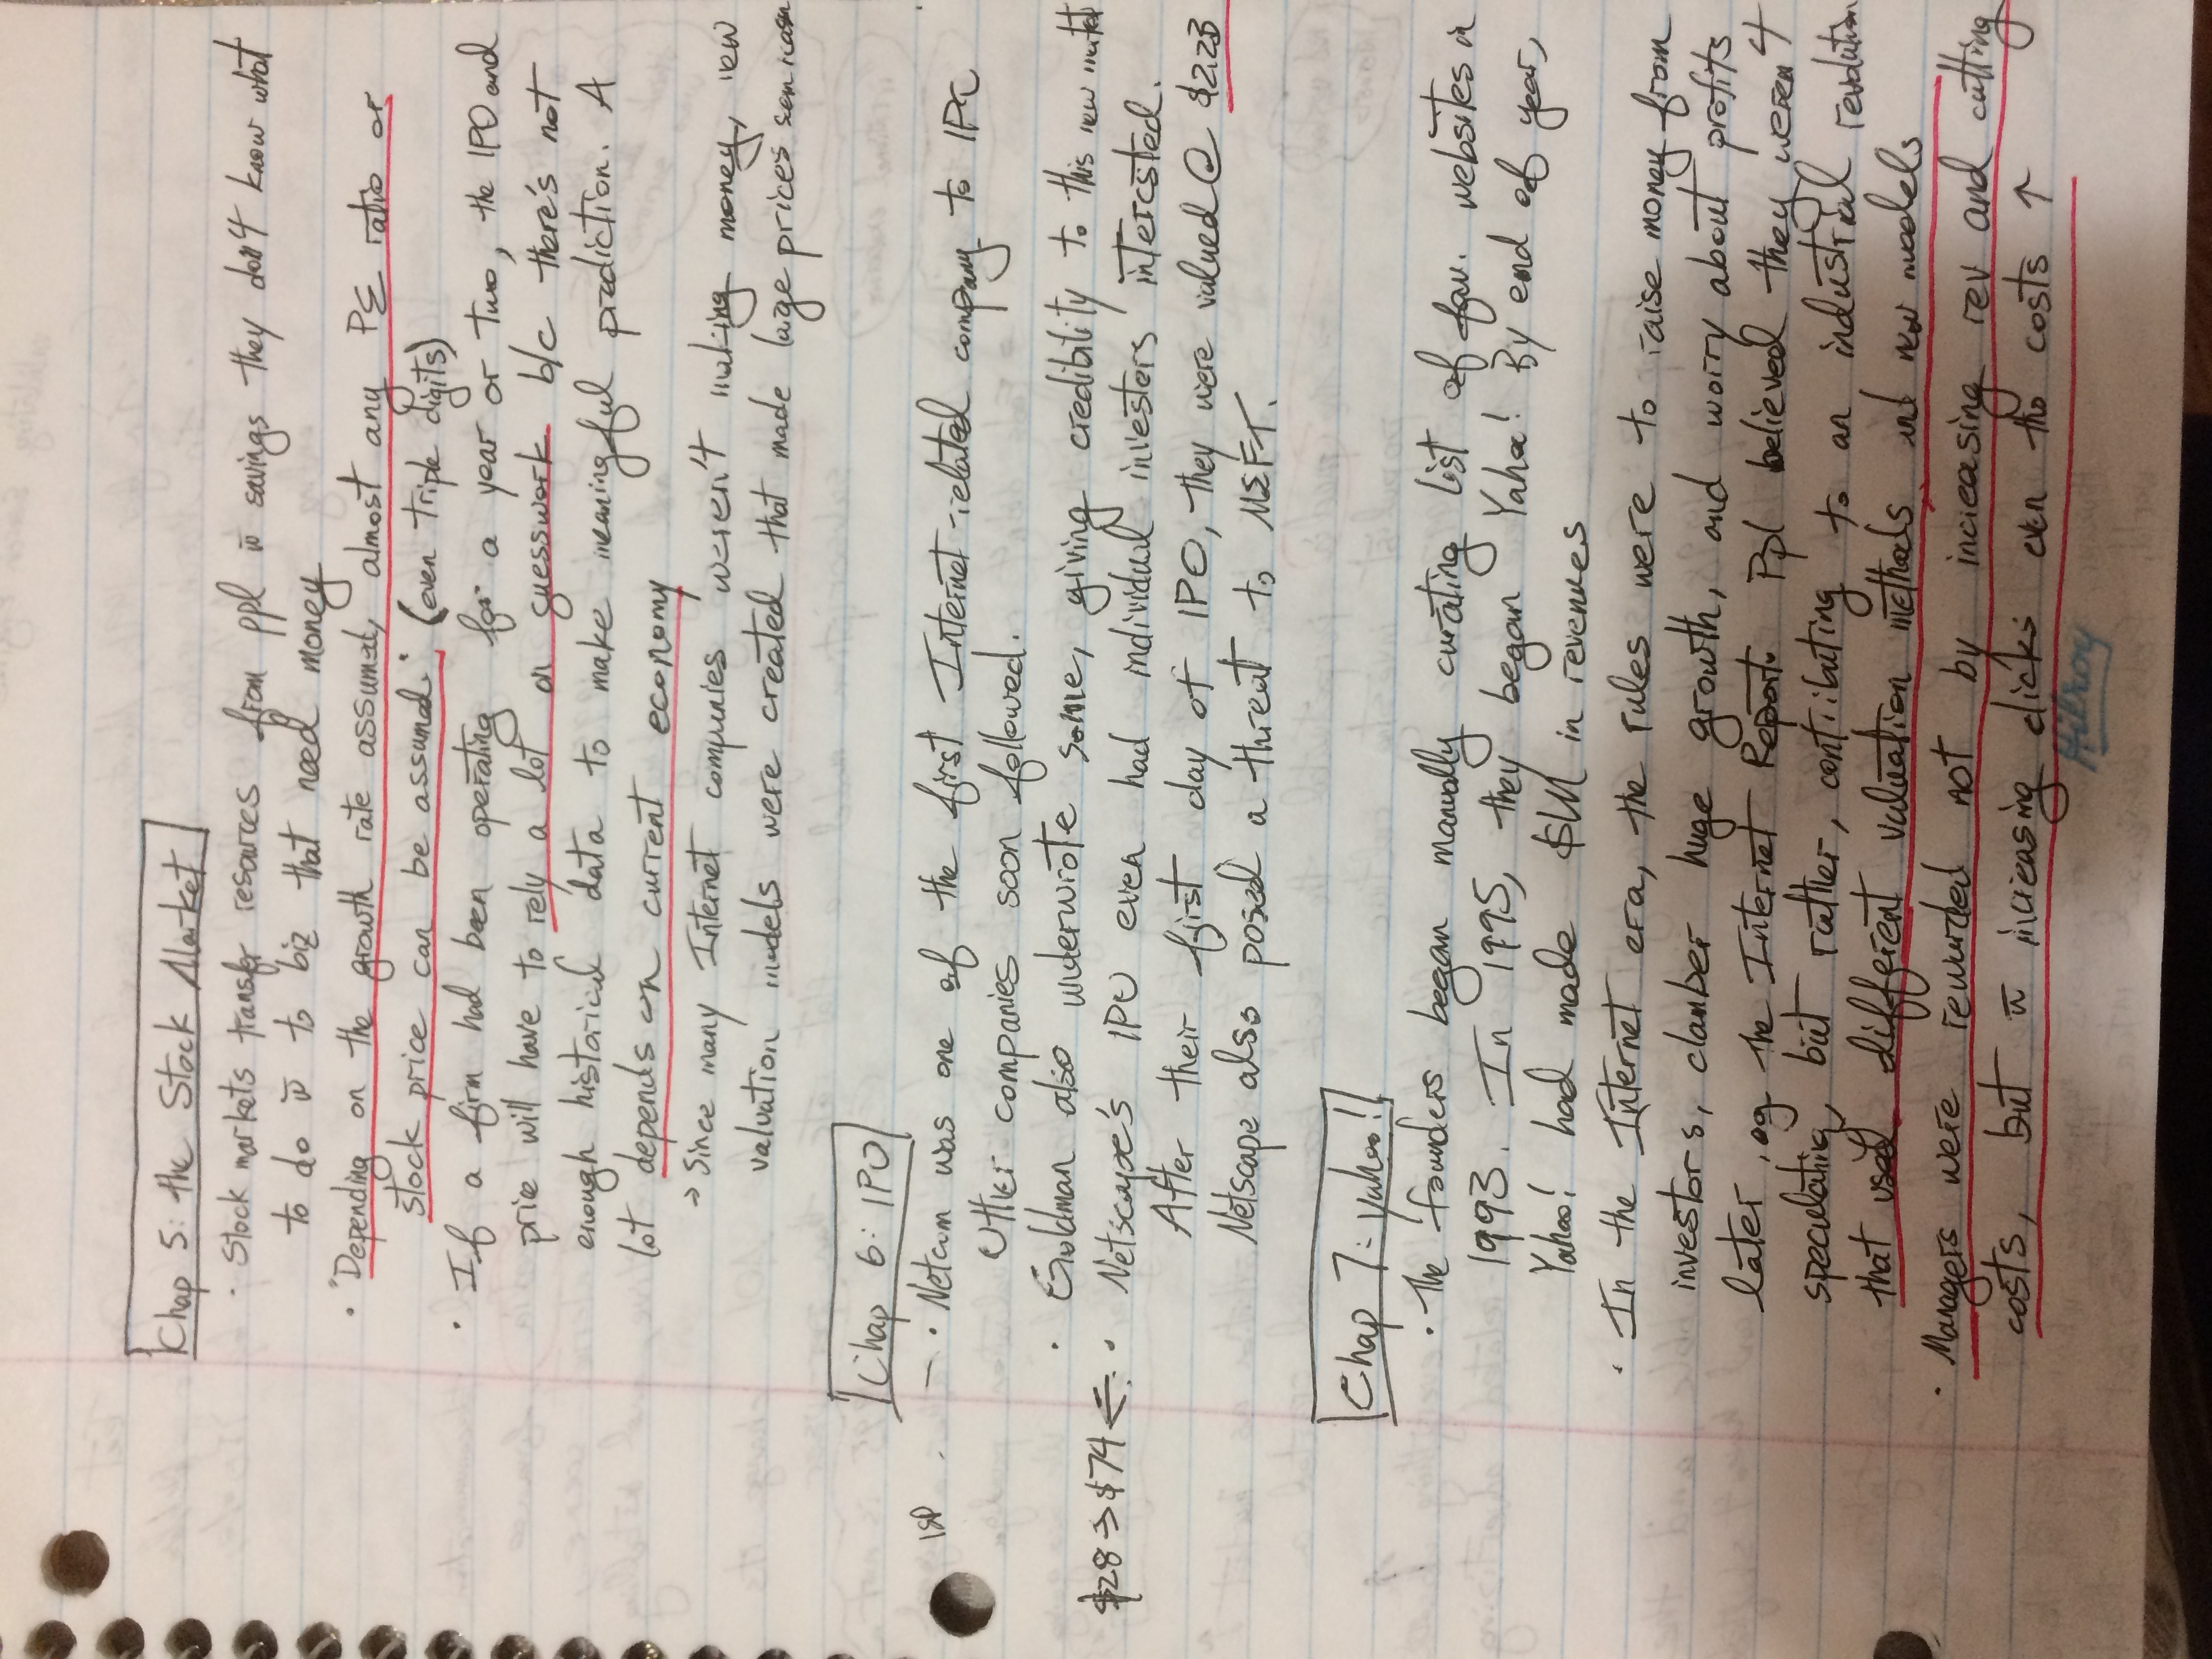 Chap 5: the Stock Market
· Stock markets transfer resources from ppl w̄ savings they don't know what
to do w̄ to biz that need money
· "Depending on the growth rate assumed, almost any PE ratio or
stock price can be assumed." (even triple digits)
· If a firm had been operating for a year or two, the IPO and
price will have to rely a lot on guesswork b/c there's not
enough historical data to make meaningful prediction. A
lot depends on current economy
→ Since many Internet companies weren't making money, new
valuation models were created that made large prices seem
Chap 6: IPO
ISP - · Netcom was one of the first Internet-related company to IPO
Other companies soon followed.
· Goldman also underwrote some, giving credibility to this new market
$28 → $74 ← · Netscape's IPO even had individual investers interested.
After their first day of IPO, they were valued @ $2.2B
Netscape also posed a threat to MSFT.
Chap 7: Yahoo!
· The founders began manually curating list of fav. websites in
1993. In 1995, they began Yahoo! By end of year,
Yahoo! had made $1M in revenues
· In the Internet era, the rules were to raise money from
investors, clamber huge growth, and worry about profits
later, eg the Internet Report. Ppl believed they weren't
speculating, but rather, contributing to an industrial revolution
that used different valuation methods and new models
· Managers were rewarded not by increasing rev and cutting
costs, but w̄ increasing clicks even tho costs ↑
Hilroy